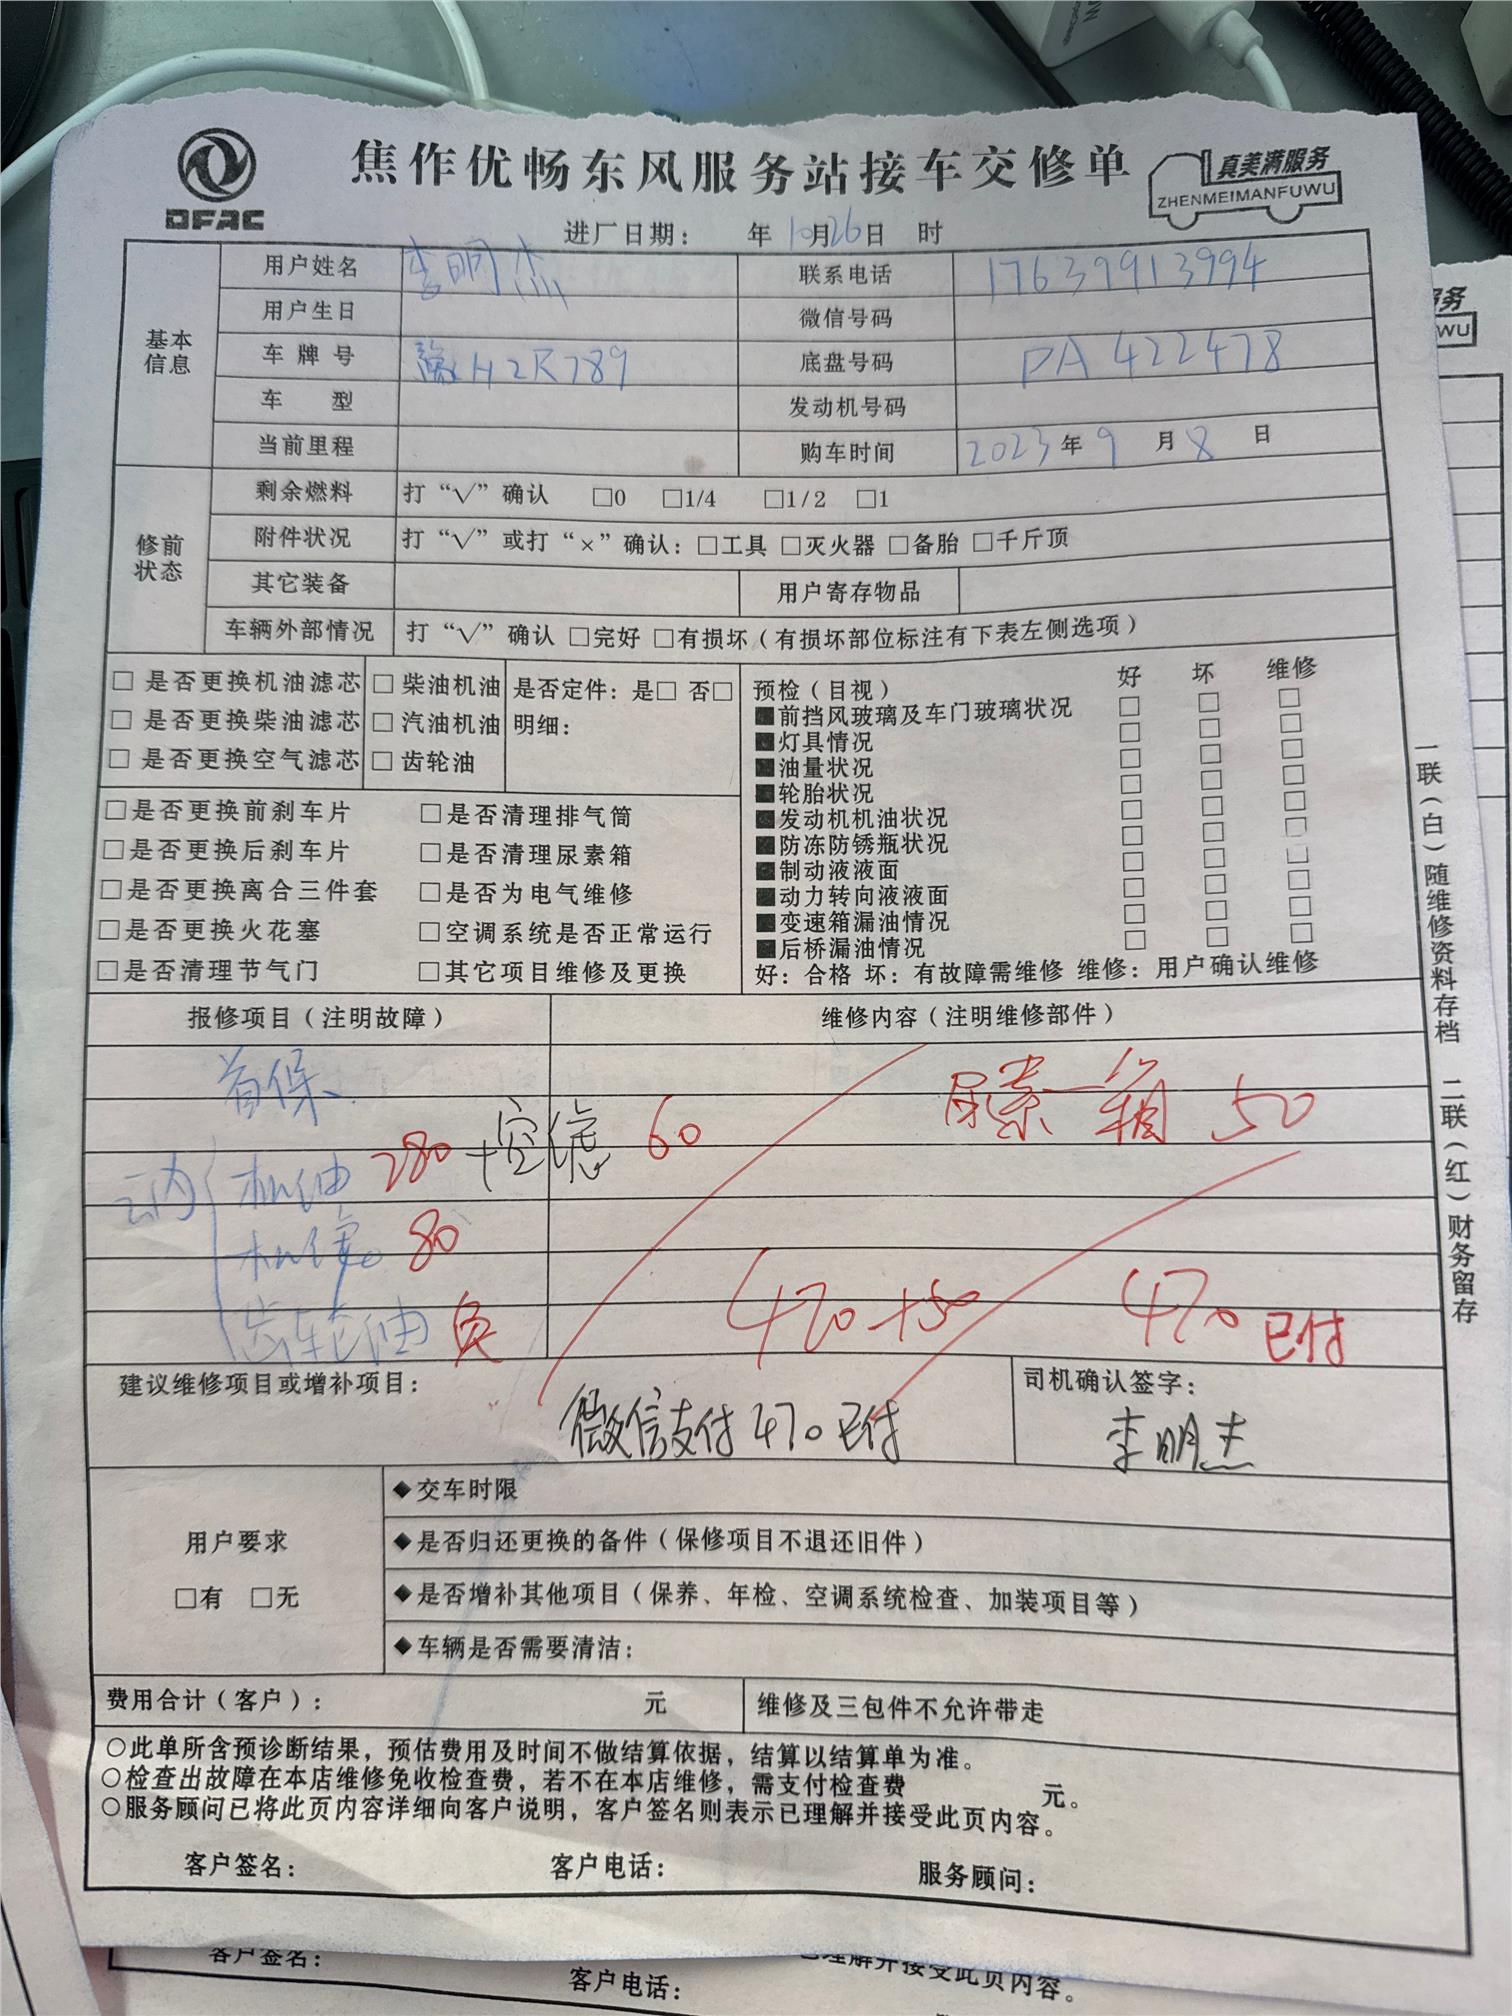 DFAC
焦作优畅东风服务站接车交修单
真美满服务
ZHENMEIMANFUWU
进厂日期： 年10月26日 时
基本信息
用户姓名 李明杰 联系电话 17639913994
用户生日 微信号码
车牌号 豫H2R789 底盘号码 PA422478
车型 发动机号码
当前里程 购车时间 2023年9月8日
修前状态
剩余燃料 打“√”确认 □0 □1/4 □1/2 □1
附件状况 打“√”或打“×”确认：□工具 □灭火器 □备胎 □千斤顶
其它装备 用户寄存物品
车辆外部情况 打“√”确认 □完好 □有损坏（有损坏部位标注有下表左侧选项）
□ 是否更换机油滤芯 □ 柴油机油 是否定件：是□ 否□
□ 是否更换柴油滤芯 □ 汽油机油 明细：
□ 是否更换空气滤芯 □ 齿轮油
□是否更换前刹车片 □是否清理排气筒
□是否更换后刹车片 □是否清理尿素箱
□是否更换离合三件套 □是否为电气维修
□是否更换火花塞 □空调系统是否正常运行
□是否清理节气门 □其它项目维修及更换
预检（目视） 好 坏 维修
■前挡风玻璃及车门玻璃状况 □ □ □
■灯具情况 □ □ □
■油量状况 □ □ □
■轮胎状况 □ □ □
■发动机机油状况 □ □ □
■防冻防锈瓶状况 □ □ □
■制动液液面 □ □ □
■动力转向液液面 □ □ □
■变速箱漏油情况 □ □ □
■后桥漏油情况 □ □ □
好：合格 坏：有故障需维修 维修：用户确认维修
报修项目（注明故障） 维修内容（注明维修部件）
首保、
尿素一箱 50
云内 机油 280 +空滤 60
机滤 80
齿轮油 免
470+50
470 已付
建议维修项目或增补项目：
微信支付470已付
司机确认签字：
李明杰
用户要求
□有 □无
◆交车时限
◆是否归还更换的备件（保修项目不退还旧件）
◆是否增补其他项目（保养、年检、空调系统检查、加装项目等）
◆车辆是否需要清洁：
费用合计（客户）： 元 维修及三包件不允许带走
○此单所含预诊断结果，预估费用及时间不做结算依据，结算以结算单为准。
○检查出故障在本店维修免收检查费，若不在本店维修，需支付检查费 元。
○服务顾问已将此页内容详细向客户说明，客户签名则表示已理解并接受此页内容。
客户签名： 客户电话： 服务顾问：
一联（白）随维修资料存档 二联（红）财务留存
务
WU
客户签名： 理解并接受此页内容。
客户电话：